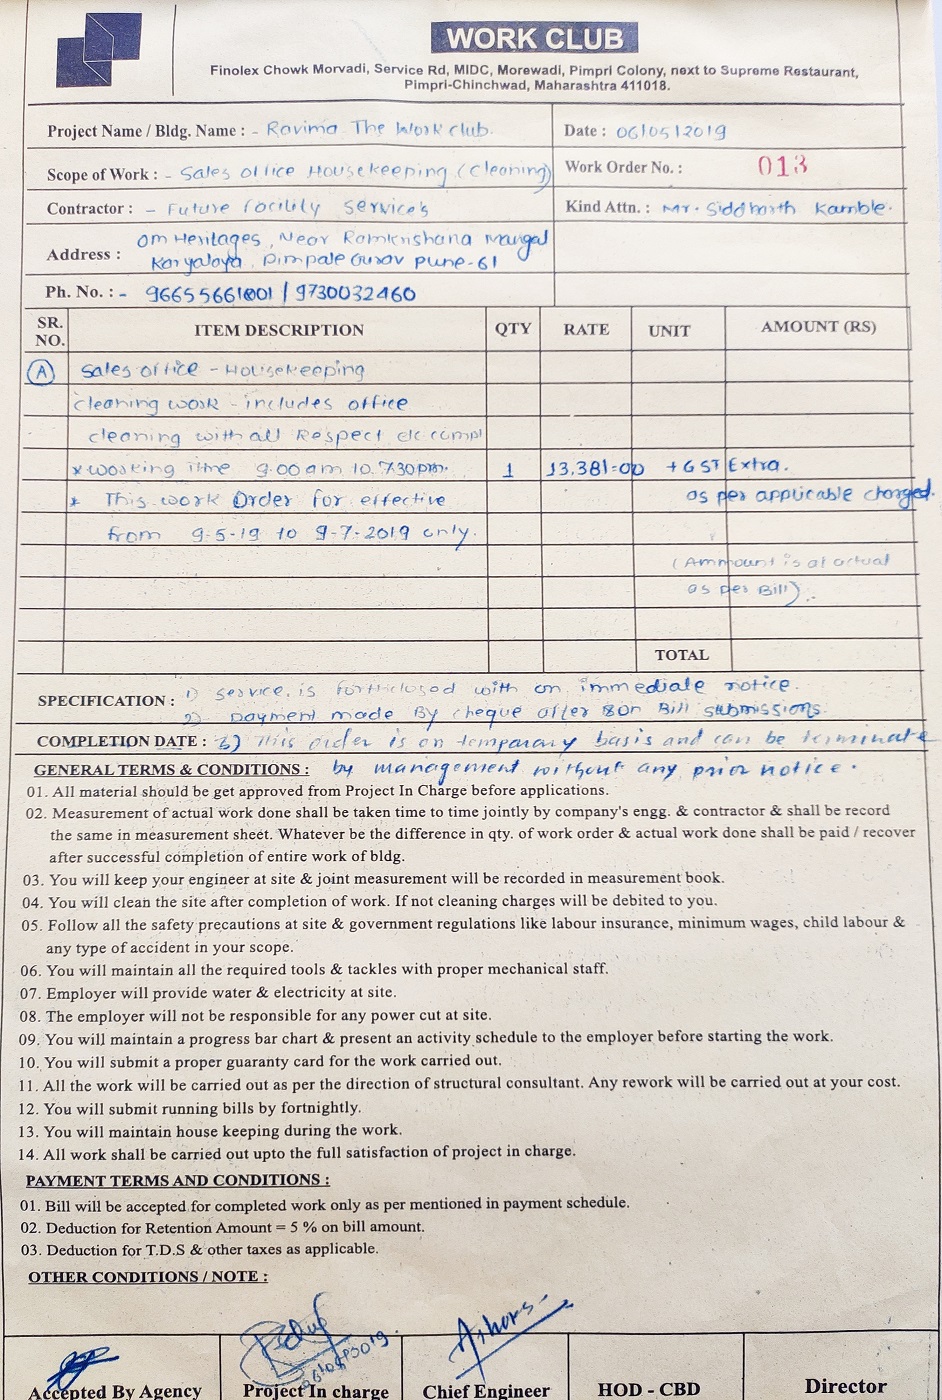 WORK CLUB
Finolex Chowk Morvadi, Service Rd, MIDC, Morewadi, Pimpri Colony, next to Supreme Restaurant,
Pimpri-Chinchwad, Maharashtra 411018.
Project Name / Bldg. Name : - Ravima The Work club. Date : 06/05/2019
Scope of Work : - Sales office Housekeeping (Cleaning) Work Order No. : 013
Contractor : - Future facility service's Kind Attn. : Mr. Siddharth Kamble.
Address : Om Heritages, Near Ramkrishana Mangal
Karyalaya, Pimpale Gurav pune-61
Ph. No. : - 9730032460
SR. NO. ITEM DESCRIPTION QTY RATE UNIT AMOUNT (RS)
A Sales office - Housekeeping
cleaning work - includes office
cleaning with all Respect etc compl
* Working Time 9.00 am to 7.30pm. 1 13,381=00 + GST Extra.
* This work Order for effective as per applicable charged.
from 9-5-19 to 9-7-2019 only.
(Ammount is at actual
as per Bill).
TOTAL
SPECIFICATION : 1) service is with an immediate notice.
2) payment made By cheque after Bill submissions
COMPLETION DATE : 3) This order is on temparary basis and can be terminate
GENERAL TERMS & CONDITIONS : by management without any prior notice.
01. All material should be get approved from Project In Charge before applications.
02. Measurement of actual work done shall be taken time to time jointly by company's engg. & contractor & shall be record
the same in measurement sheet. Whatever be the difference in qty. of work order & actual work done shall be paid / recover
after successful completion of entire work of bldg.
03. You will keep your engineer at site & joint measurement will be recorded in measurement book.
04. You will clean the site after completion of work. If not cleaning charges will be debited to you.
05. Follow all the safety precautions at site & government regulations like labour insurance, minimum wages, child labour &
any type of accident in your scope.
06. You will maintain all the required tools & tackles with proper mechanical staff.
07. Employer will provide water & electricity at site.
08. The employer will not be responsible for any power cut at site.
09. You will maintain a progress bar chart & present an activity schedule to the employer before starting the work.
10. You will submit a proper guaranty card for the work carried out.
11. All the work will be carried out as per the direction of structural consultant. Any rework will be carried out at your cost.
12. You will submit running bills by fortnightly.
13. You will maintain house keeping during the work.
14. All work shall be carried out upto the full satisfaction of project in charge.
PAYMENT TERMS AND CONDITIONS :
01. Bill will be accepted for completed work only as per mentioned in payment schedule.
02. Deduction for Retention Amount = 5 % on bill amount.
03. Deduction for T.D.S & other taxes as applicable.
OTHER CONDITIONS / NOTE :
Accepted By Agency Project In charge Chief Engineer HOD - CBD Director